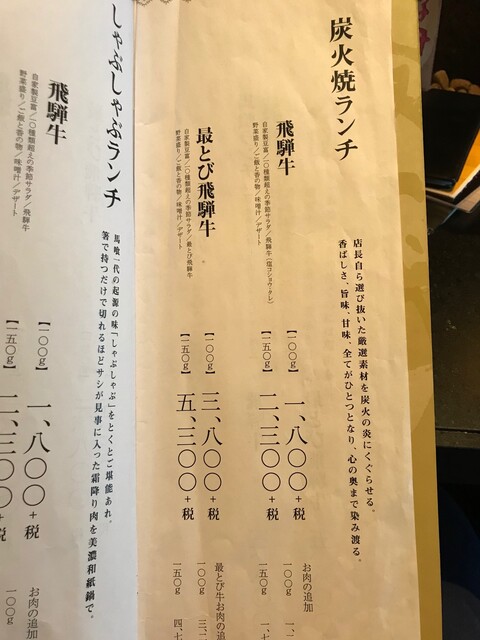 炭火焼ランチ
店長自ら選び抜いた厳選素材を炭火の炎にくぐらせる。
香ばしさ、旨味、甘味、全てがひとつとなり、心の奥まで染み渡る。
飛騨牛
自家製豆富/一〇種類超えの季節サラダ/飛騨牛(塩コショウ・タレ)
野菜盛り/ご飯と香の物/味噌汁/デザート
【一〇〇g】 一、八〇〇+税
【一五〇g】 二、三〇〇+税
お肉の追加
一〇〇g
一五〇g
最とび飛騨牛
自家製豆富/一〇種類超えの季節サラダ/最とび飛騨牛
野菜盛り/ご飯と香の物/味噌汁/デザート
【一〇〇g】 三、八〇〇+税
【一五〇g】 五、三〇〇+税
最とび牛お肉の追
一〇〇g
一五〇g
しゃぶしゃぶランチ
馬喰一代の起源の味「しゃぶしゃぶ」をとくとご堪能あれ。
箸で持つだけで切れるほどサシが見事に入った霜降り肉を美濃和紙鍋で。
飛騨牛
自家製豆富/一〇種類超えの季節サラダ/飛騨牛
野菜盛り/ご飯と香の物/味噌汁/デザート
【一〇〇g】 一、八〇〇+税
【一五〇g】 二、三〇〇+税
お肉の追加
一〇〇g